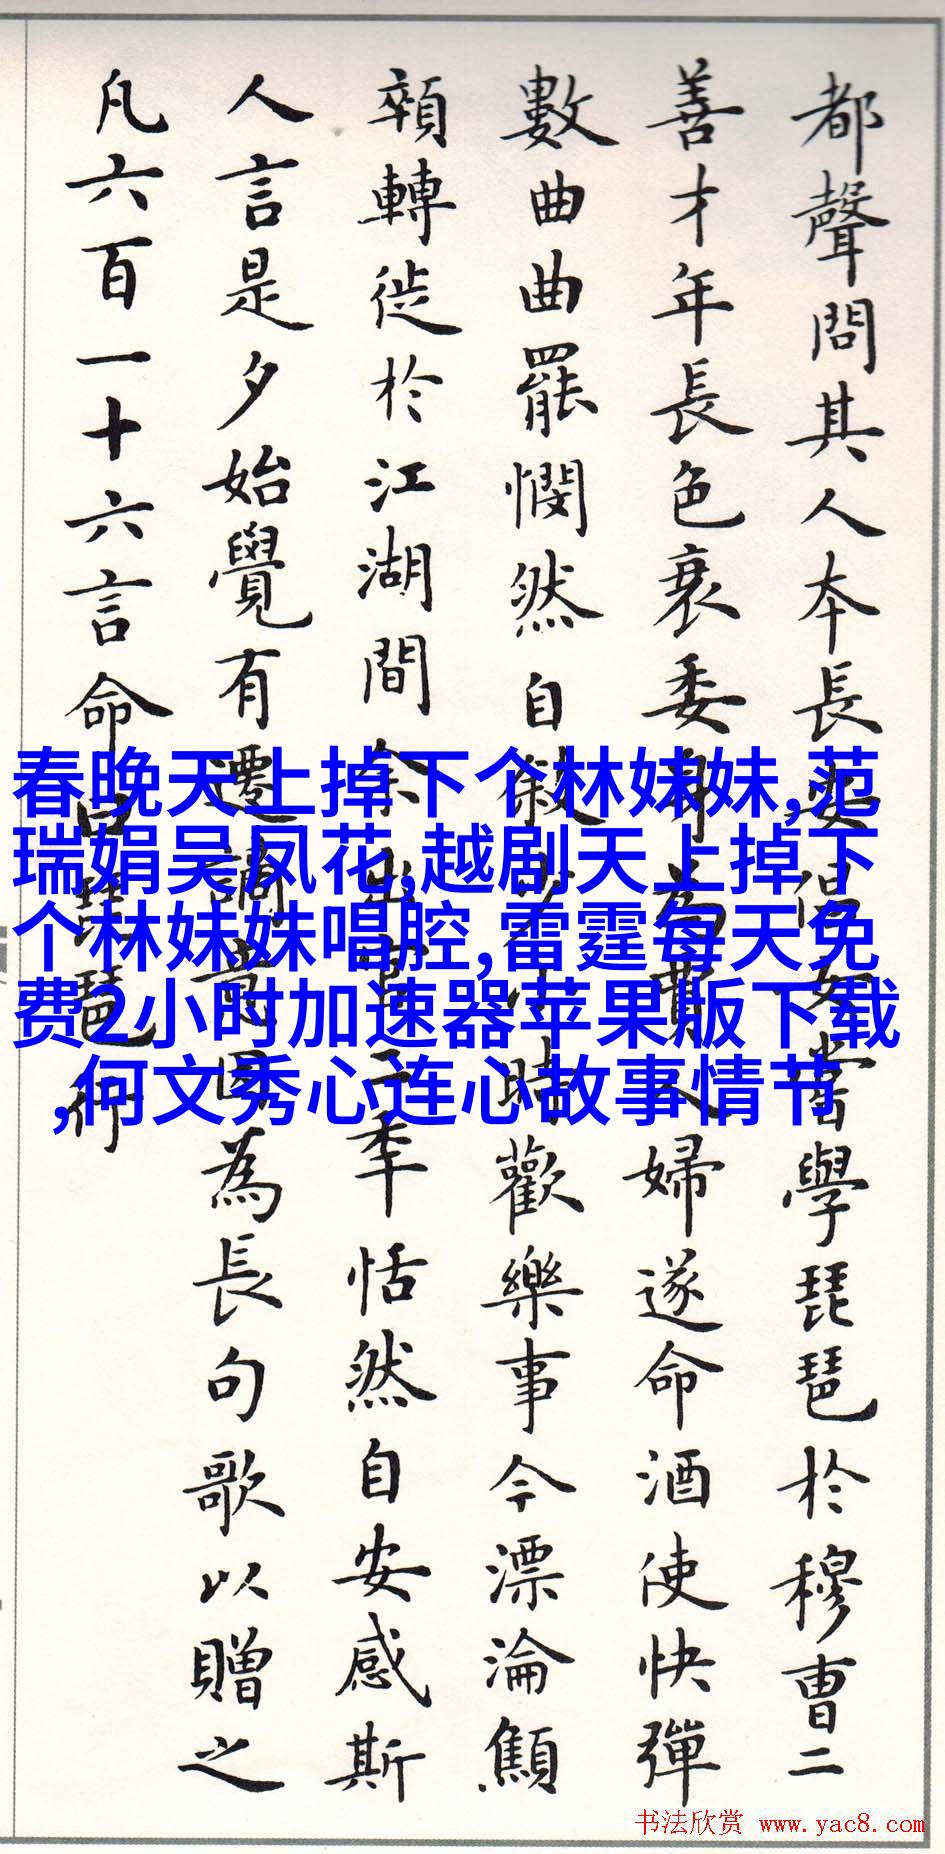 都聲問其人本長安倡女嘗學琵琶於穆曹二
善才年長色衰委身為賈人婦遂命酒使快彈
數曲曲罷憫然自敘少小時歡樂事今漂淪顦
顇轉徙於江湖間余出官二秊恬然自安感斯
人言是夕始覺有遷謫意因為長句歌以贈之
凡六百一十六言命曰琵琶行
春晚天上掉下个林妹妹,范
瑞娟吴凤花,越剧天上掉下
个林妹妹唱腔,雷霆每天免
费2小时加速器苹果版下载
,何文秀心连心故事情节
书法欣赏 www.yac8.com